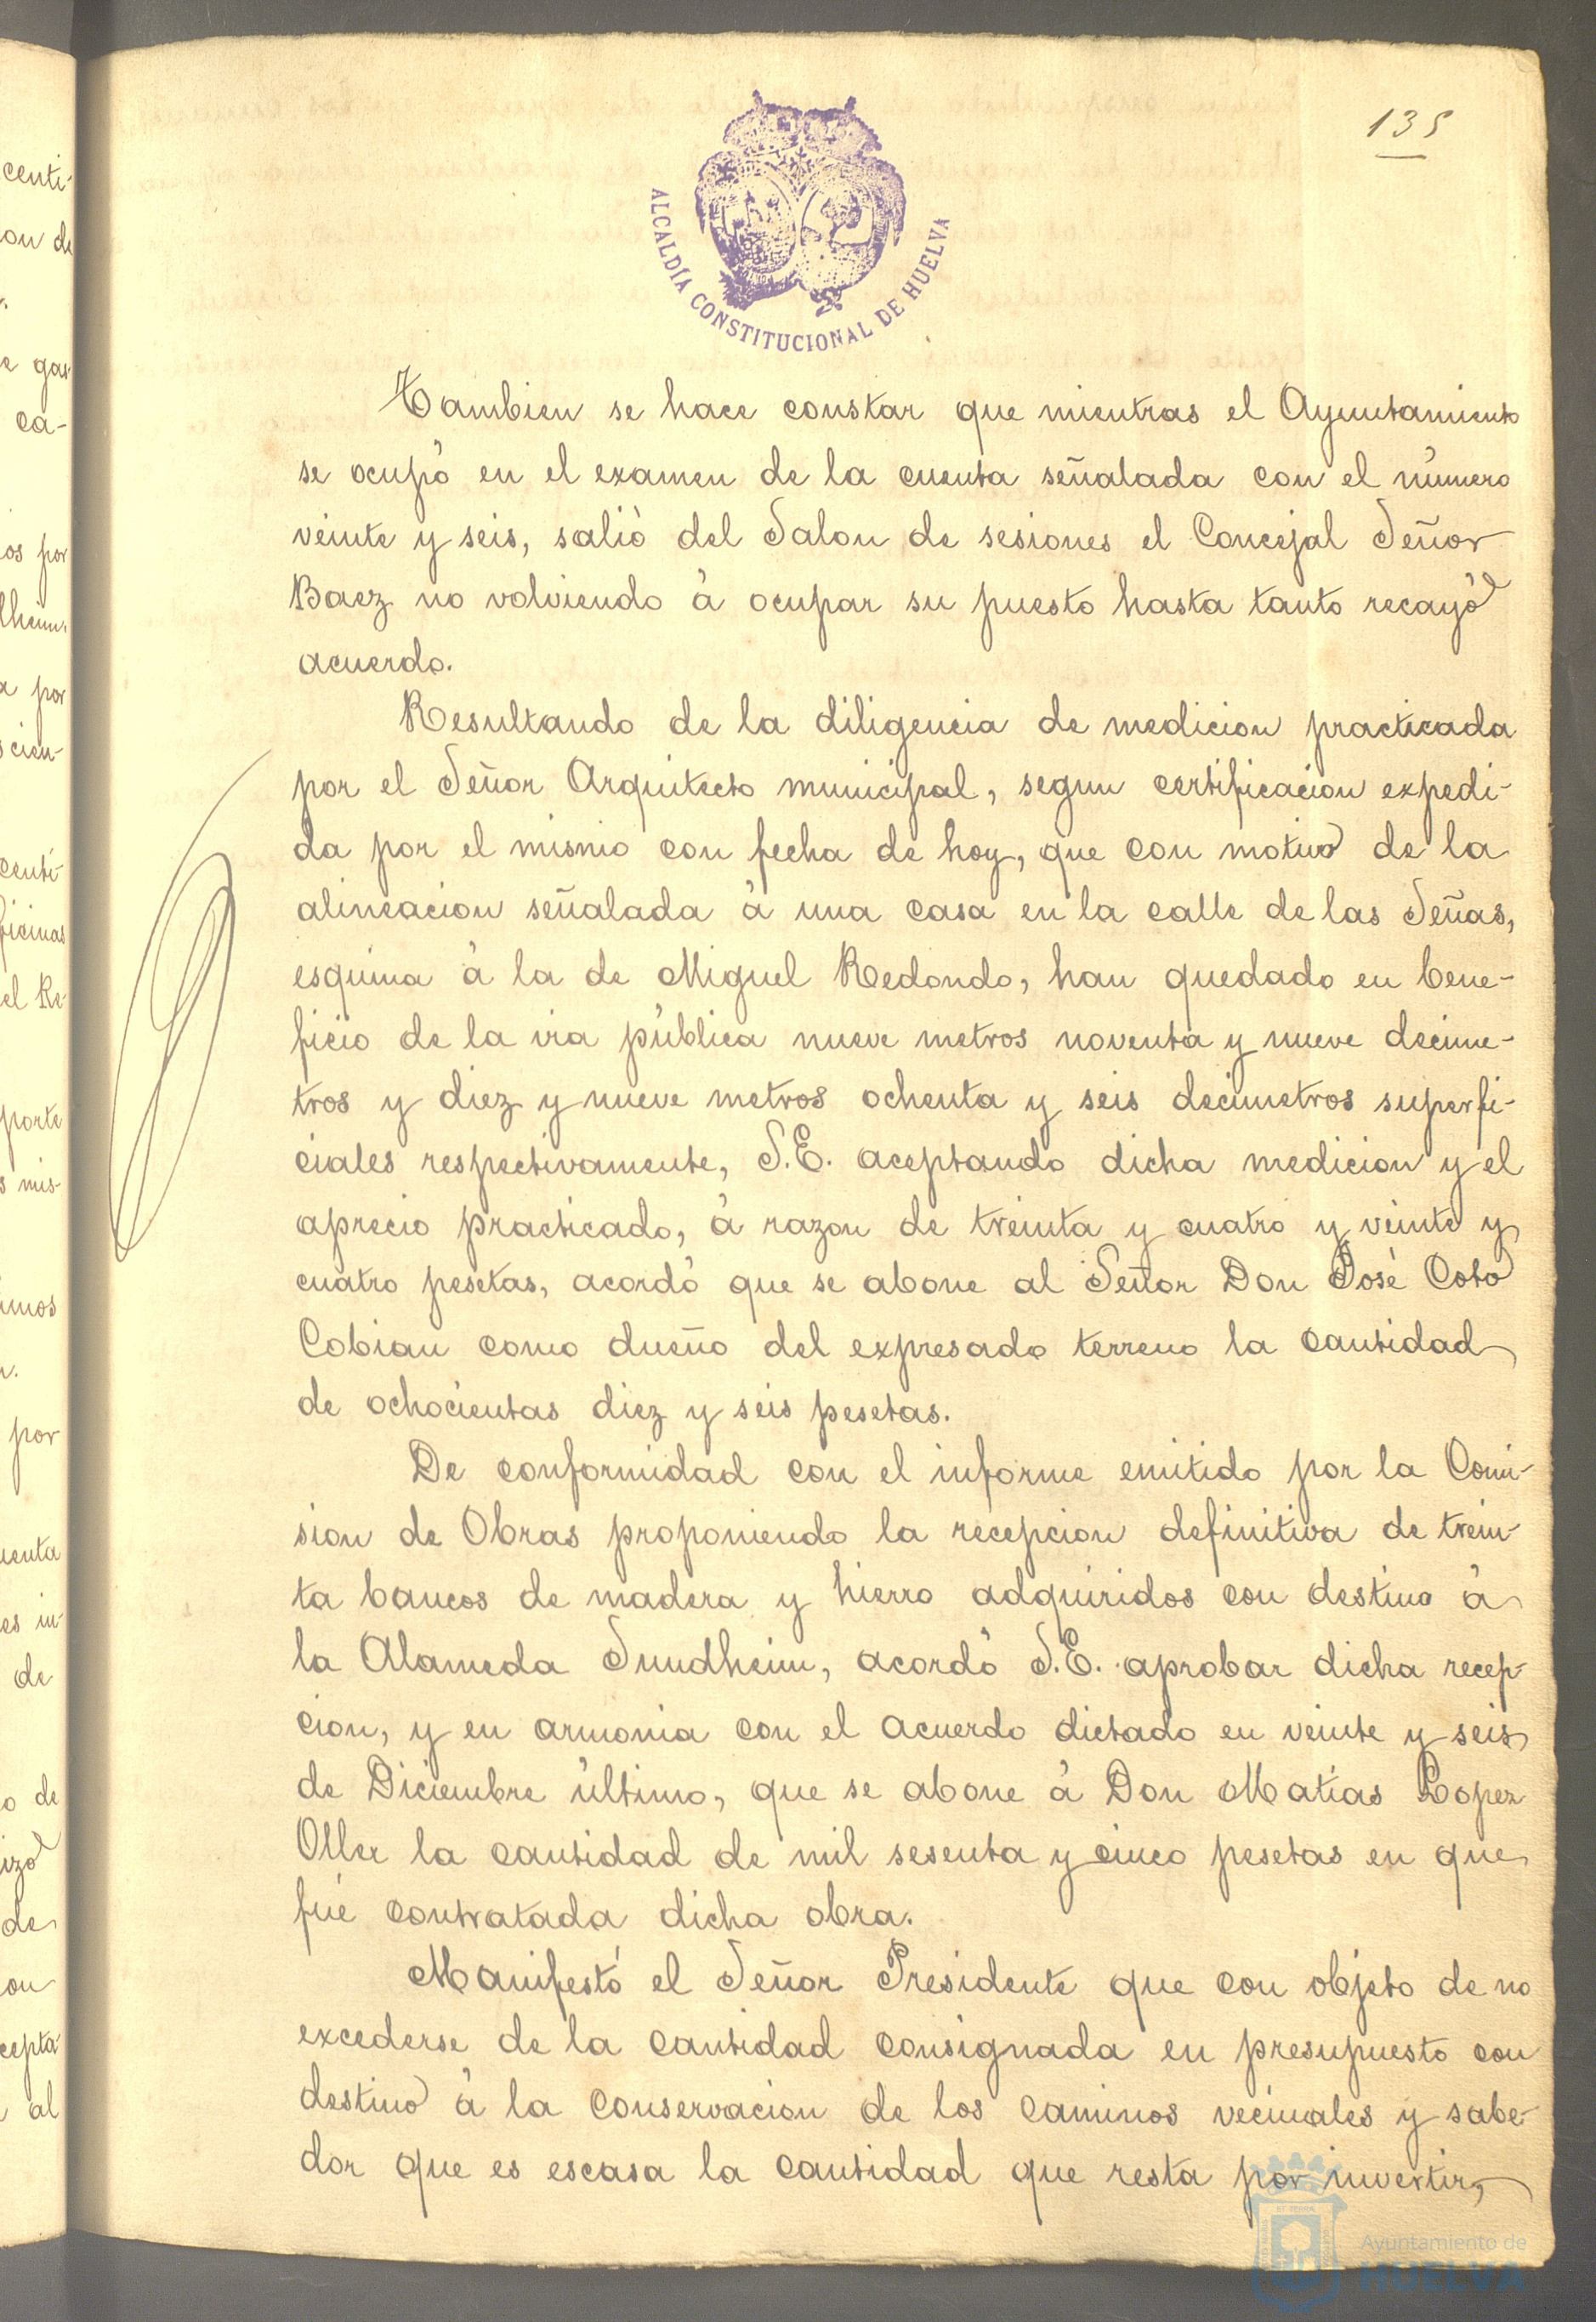 135
ALCALDÍA CONSTITUCIONAL DE HUELVA
Tambien se hace constar que mientras el Ayuntamiento
se ocupó en el examen de la cuenta señalada con el número
veinte y seis, salió del Salon de sesiones el Concejal Señor
Baez no volviendo á ocupar su puesto hasta tanto recayó
acuerdo.
Resultando de la diligencia de medicion practicada
por el Señor Arquitecto municipal, segun certificacion expedi-
da por el mismo con fecha de hoy, que con motivo de la
alineacion señalada á una casa en la calle de las Señas,
esquina á la de Miguel Redondo, han quedado en bene-
ficio de la via pública nueve metros noventa y nueve decime-
tros y diez y nueve metros ochenta y seis decimetros superfi-
ciales respectivamente, S.E. aceptando dicha medicion y el
aprecio practicado, á razon de treinta y cuatro y veinte y
cuatro pesetas, acordó que se abone al Señor Don José Coto
Cobian como dueño del expresado terreno la cantidad
de ochocientas diez y seis pesetas.
De conformidad con el informe emitido por la Comi-
sion de Obras proponiendo la recepcion definitiva de trein-
ta bancos de madera y hierro adquiridos con destino á
la Alameda Sundheim, acordó S.E. aprobar dicha recep-
cion, y en armonia con el acuerdo dictado en veinte y seis
de Diciembre último, que se abone á Don Matias Lopez
Oller la cantidad de mil sesenta y cinco pesetas en que
fué contratada dicha obra.
Manifestó el Señor Presidente que con objeto de no
excederse de la cantidad consignada en presupuesto con
destino á la conservacion de los caminos vecinales y sabe-
dor que es escasa la cantidad que resta por invertir,
Ayuntamiento de
HUELVA